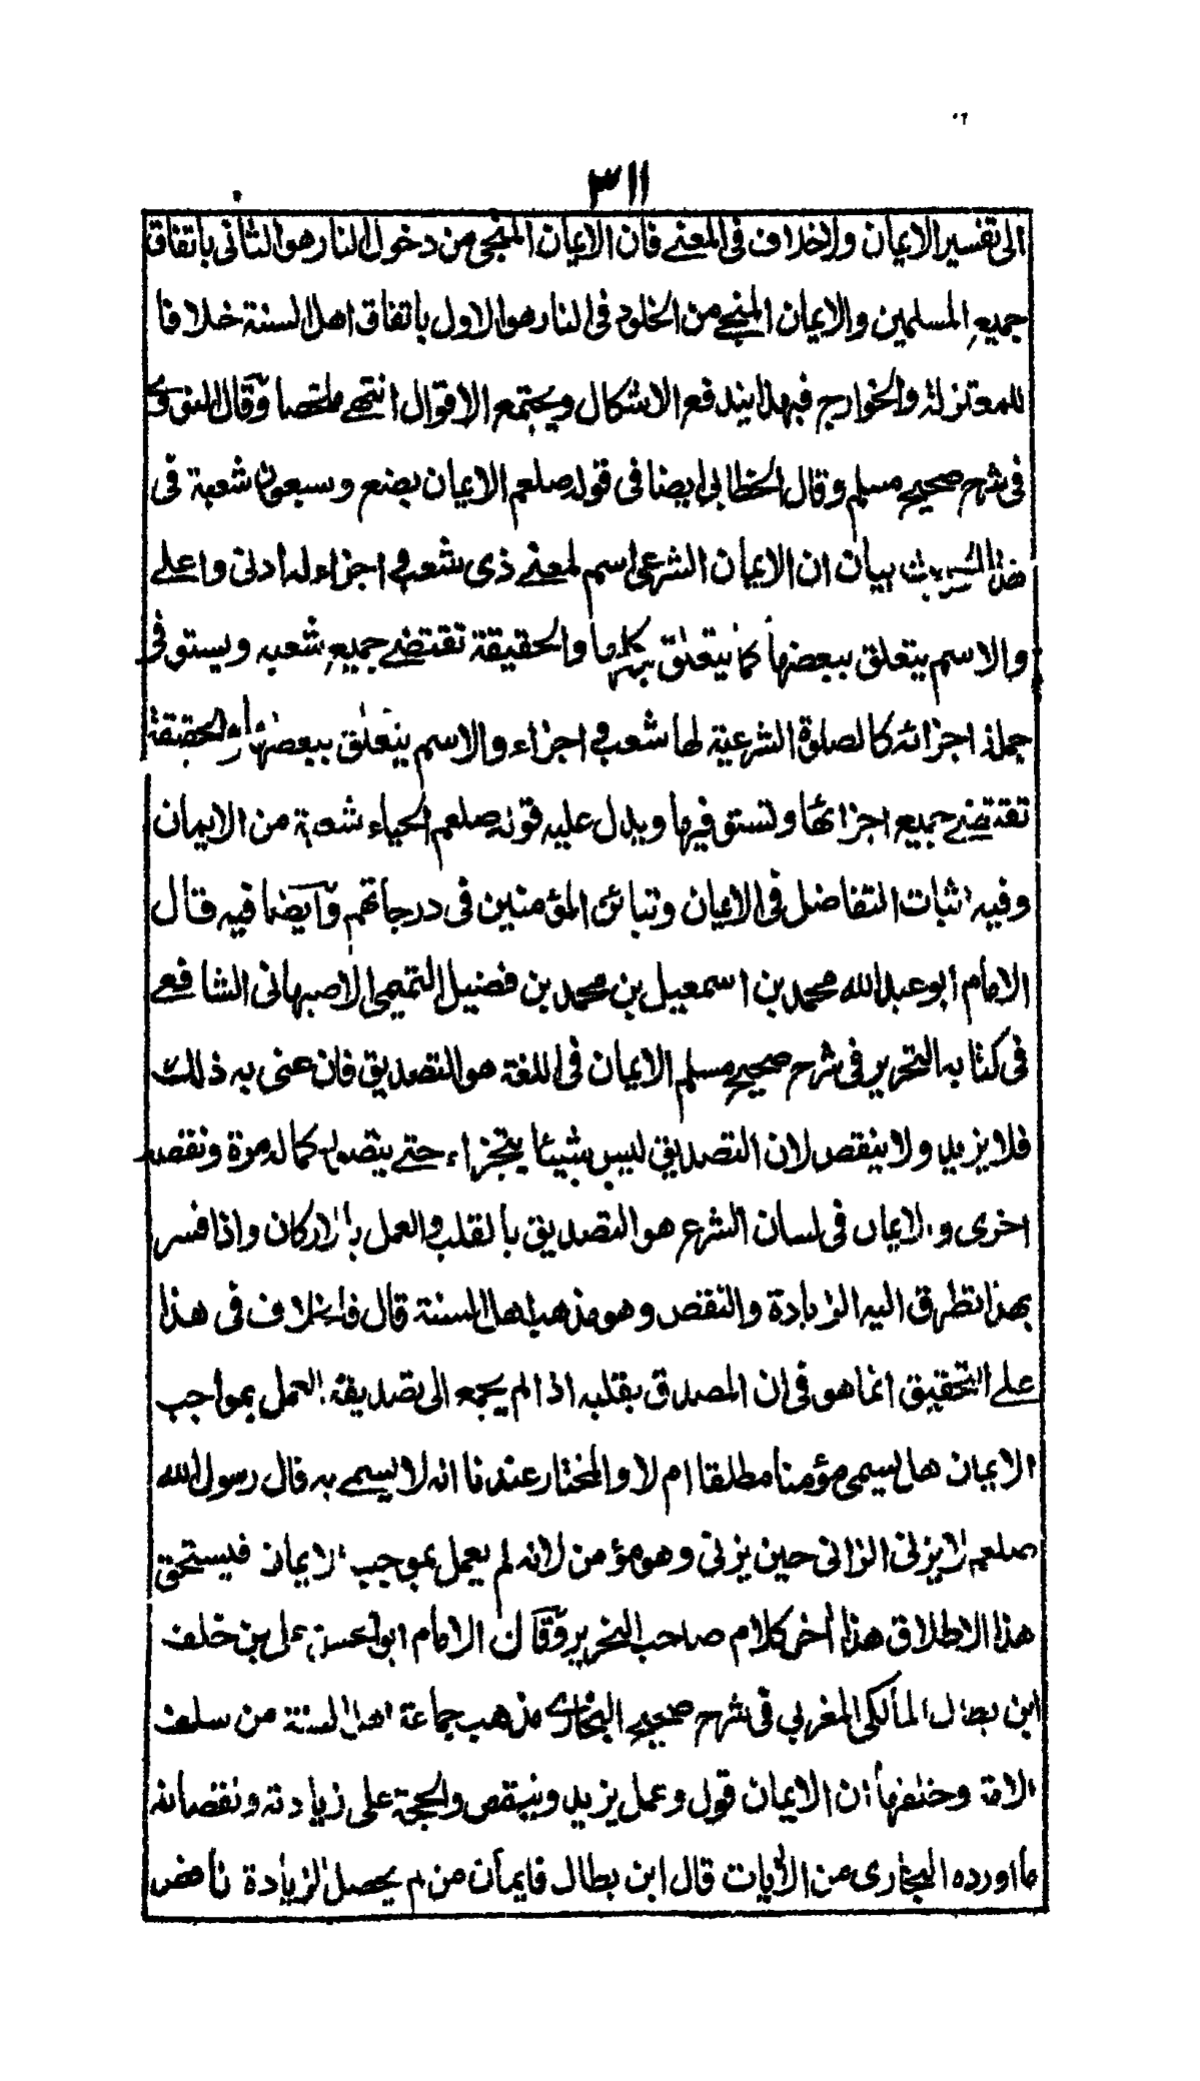 ٣١١
الى تفسير الايمان والاخلاف فى المعنے فان الايمان المنجى من دخول النار هو الثانى باتفاق
جميع المسلمين والايمان المنجے من الخلود فى النار هو الاول باتفاق اهل السنة خلافا
للمعتزلة والخوارج فبهذا يندفع الاشكال ويجتمع الاقوال انتهے ملخصا وقال النووى
فى شرح صحيح مسلم وقال الخطابى ايضا فى قوله صلعم الايمان بضع وسبعون شعبة فى
هذا الحديث بيان ان الايمان الشرعى اسم لمعنے ذى شعب و اجزاء له ادنى واعلے
والاسم يتعلق ببعضها كما يتعلق بكلها والحقيقة تقتضے جميع شعبه ويستوفى
جملة اجزائه كالصلوة الشرعية لها شعب و اجزاء والاسم يتعلق ببعضها والحقيقة
تقتضے جميع اجزائها وتستوفيها ويدل عليه قوله صلعم الحياء شعبة من الايمان
وفيه اثبات التفاضل فى الايمان وتبائن المؤمنين فى درجاتهم وآيضا فيه قال
الامام أبو عبد الله محمد بن اسمعيل بن محمد بن فضيل التميمى الاصبهانى الشافعے
فى كتابه التحرير فى شرح صحيح مسلم الايمان فى اللغة هو التصديق فان عنى به ذلك
فلا يزيد ولا ينقص لان التصديق ليس شيئا يتجزاء حتے يتصور كماله مرة ونقصه
اخرى والايمان فى لسان الشرع هو التصديق بالقلب والعمل بالاركان واذا فسر
بهذا تطرق اليه الزيادة والنقص وهو مذهب اهل السنة قال فالخلاف فى هذا
علے التحقيق انما هو فى ان المصدق بقلبه اذا لم يجمع الى تصديقه العمل بمواجب
الايمان هل يسمى مؤمنا مطلقا ام لا والمختار عندنا انه لا يسمے به قال رسول الله
صلعم لا يزنى الزانى حين يزنى وهو مؤمن لانه لم يعمل بموجب الايمان فيستحق
هذا الاطلاق هذا أخر كلام صاحب التحرير وقال الامام ابو الحسن على بن خلف
ابن بطال المالكى المغربى فى شرح صحيح البخارى مذهب جماعة اهل السنة من سلف
الامة وخلفها ان الايمان قول وعمل يزيد وينقص والحجة على زيادته ونقصانه
ما اورده البخارى من الأيات قال ابن بطال فايمان من لم يحصل الزيادة ناقص